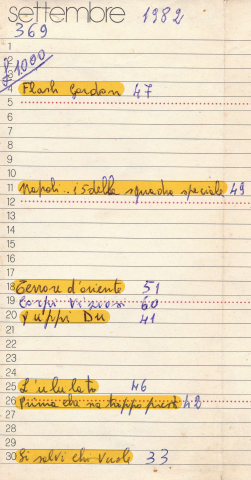 settembre 1982
369
1
2
£ 1000
3
4 Flash Gordon 47
5
6
7
8
9
10
11 Napoli.. i 5 della squadra speciale 49
12
13
14
15
16
17
18 Terrore d'oriente 51
19 Corpi 60
20 Yuppi Du 41
21
22
23
24
25 L'ululato 46
26 Prima che sia troppo presto 42
27
28
29
30 Si salvi chi vuole 33